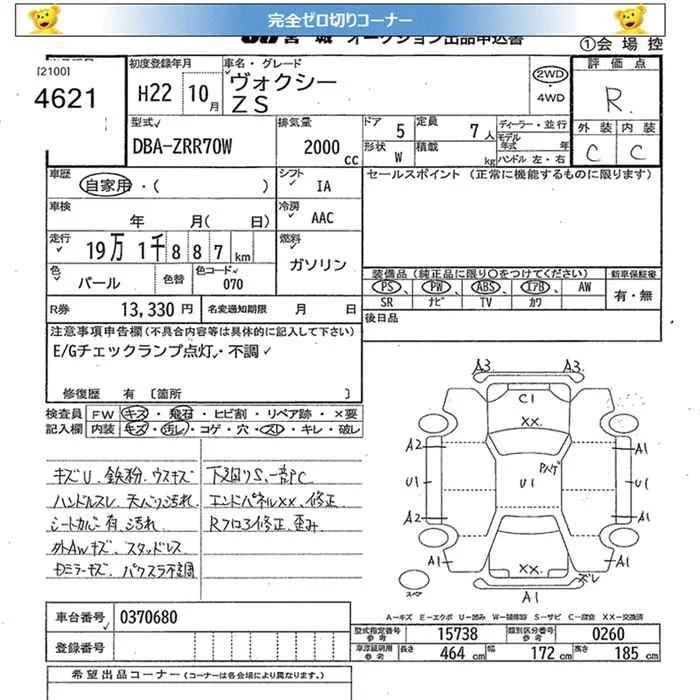 完全ゼロ切りコーナー
JU 宮城 オークション出品申込書
①会場控
[2100]
4621
初度登録年月
H22 10月
車名・グレード
ヴォクシー
ZS
2WD
・
4WD
評価点
R.
外装 内装
C C
型式✓
DBA-ZRR70W
排気量
2000cc
ドア 5
形状 W
定員 7人
積載 kg
ディーラー・並行
モデル年式 年
ハンドル 左・右
車歴
自家用・( )
シフト✓
IA
セールスポイント (正常に機能するものに限ります)
車検
年 月( 日)
冷房✓
AAC
走行✓
19万 1千 8 8 7 km
燃料✓
ガソリン
色✓
パール
色替
色コード✓
070
装備品(純正品に限り○をつけてください)
新車保証書
PS 、 PW 、 ABS 、 エアB 、 AW
SR ナビ TV カワ
有・無
R券
13,330 円
名変通知期限 月 日
後日品
注意事項申告欄(不具合内容等は具体的に記入して下さい)
E/Gチェックランプ点灯✓・不調✓
修復歴 有 〔箇所 〕
検査員記入欄
FW キズ・飛石・ヒビ割・リペア跡・×要
内装 キズ・汚レ・コゲ・穴・スレ・キレ・破レ
キズU、鉄粉、ウスキズ
ハンドルスレ、天バリ汚れ
シートカバー有、汚れ
外AWキズ、スタッドレス
Dミラーキズ、パワスラ不調
下廻りS、一部PC
エンドパネルXX、修正
Rフロア修正、歪み
A3 A3
C1
XX.
A2 A1
Pハゲ
U1 U1 U1
A2 A1
A1
XX.
ズレ
A1
スペア
A-キズ E-エクボ U-凹み W-補修跡 S-サビ C-腐食 XX-交換済
車台番号 0370680
登録番号
型式指定番号 参考 15738
類別区分番号 参考 0260
車庫証明用 参考 長さ 464 cm 幅 172 cm 高さ 185 cm
希望出品コーナー (コーナーは各会場により異なります。)